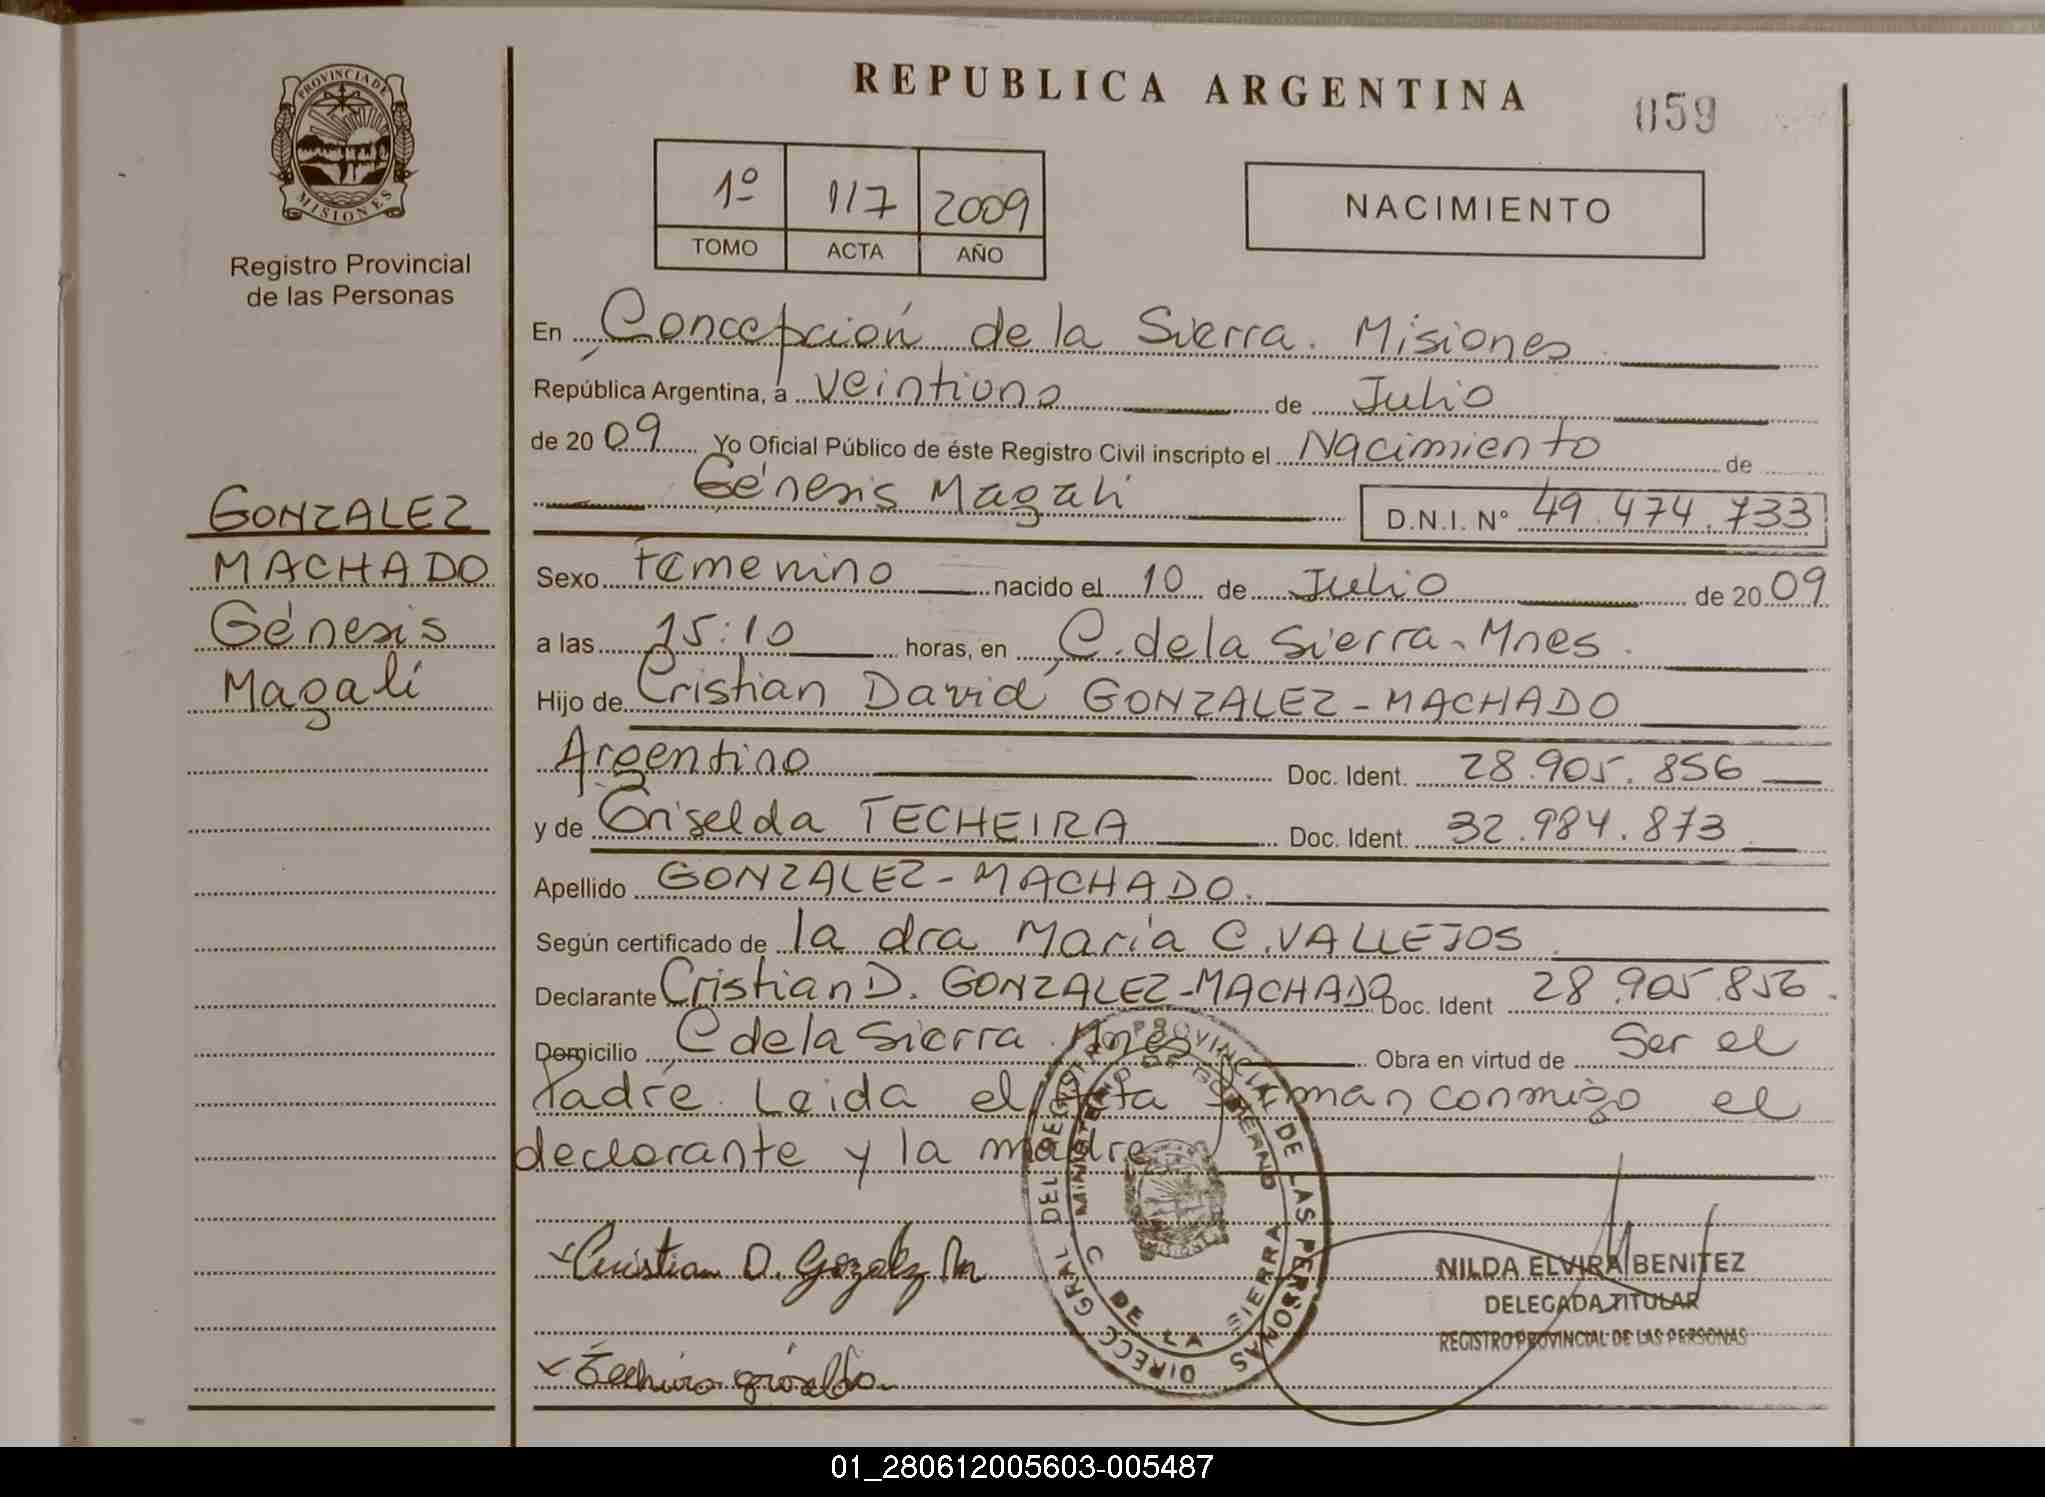 PROVINCIA DE
MISIONES
Registro Provincial
de las Personas
GONZALEZ
MACHADO
Génesis
Magalí
REPUBLICA ARGENTINA
059
1º 117 2009
TOMO ACTA AÑO
NACIMIENTO
En Concepción de la Sierra. Misiones
República Argentina, a veintiuno de Julio
de 2009 Yo Oficial Público de éste Registro Civil inscripto el Nacimiento de
Génesis Magalí D.N.I. Nº 49.474.733
Sexo Femenino nacido el 10 de Julio de 2009
a las 15:10 horas, en C. de la Sierra - Mnes.
Hijo de Cristian David GONZALEZ-MACHADO
Argentino Doc. Ident. 28.905.856
y de Griselda TECHEIRA Doc. Ident. 32.984.873
Apellido GONZALEZ-MACHADO.
Según certificado de la dra María C. VALLEJOS.
Declarante Cristian D. GONZALEZ-MACHADO Doc. Ident 28.905.856.
Domicilio C de la Sierra. Mnes Obra en virtud de Ser el
Padre. Leida el Acta Firman conmigo el
declarante y la madre
DIRECC GRAL DEL REGISTRO PROVINCIAL DE LAS PERSONAS
MINISTERIO DE GOBIERNO
C DE LA SIERRA
Cristian D. Gozalez M
Techeira griselda
NILDA ELVIRA BENITEZ
DELEGADA TITULAR
REGISTRO PROVINCIAL DE LAS PERSONAS
01_280612005603-005487